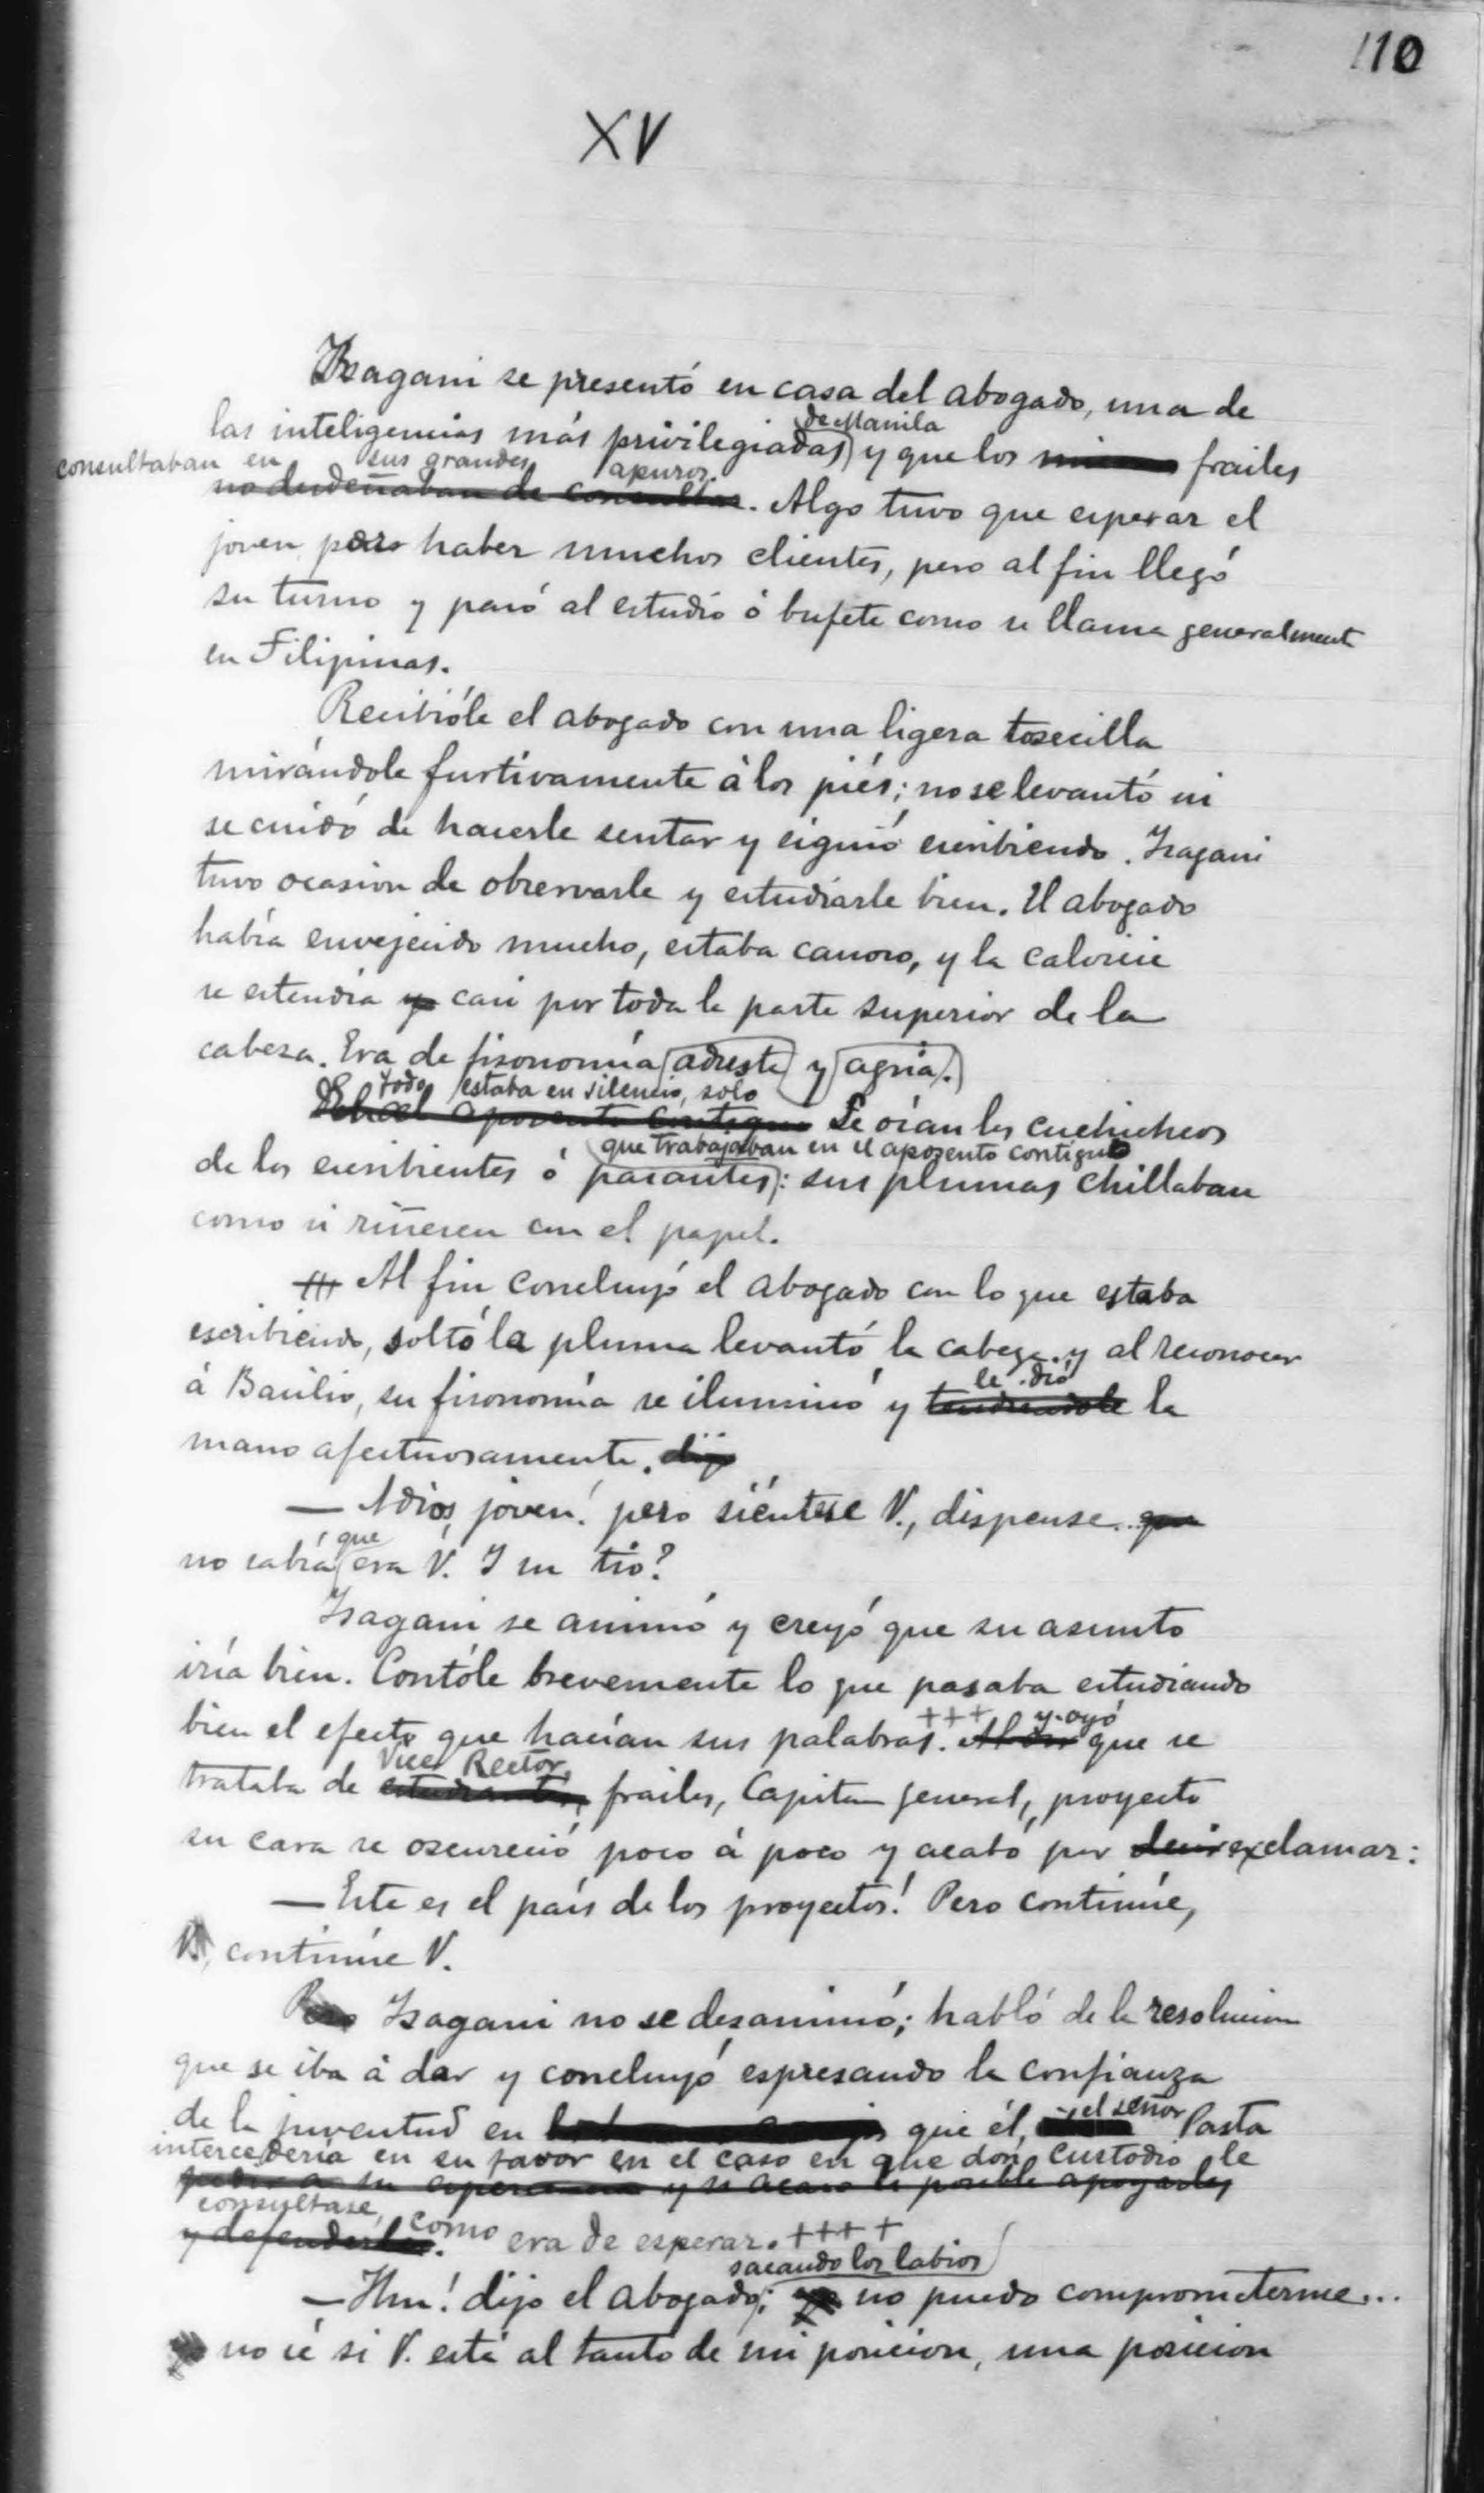 110
XV
Isagani se presentó en casa del abogado, una de
las inteligencias más privilegiadas de Manila y que los frailes
consultaban en sus grandes apuros.
no desdeñaban de consultar. Algo tuvo que esperar el
joven, por haber muchos clientes, pero al fin llegó
su turno y pasó al estudio ó bufete como se llama generalmente
en Filipinas.
Recibióle el abogado con una ligera tosecilla
mirándole furtivamente á los piés; no se levantó ni
se cuidó de hacerle sentar y siguió escribiendo. Isagani
tuvo ocasion de observarle y estudiarle bien. El abogado
había envejecido mucho, estaba canoso, y la calvicie
se estendía casi por toda la parte superior de la
cabeza. Era de fisonomía adusta y agria.
todo estaba en silencio, solo
En el aposento contiguo Se oían los cuchicheos
que trabajaban en el aposento contiguo
de los escribientes ó pasantes: sus plumas chillaban
como si riñesen con el papel.
Al fin concluyó el abogado con lo que estaba
escribiendo, soltó la pluma levantó la cabeza y al reconocer
á Basilio, su fisonomía se iluminó y le dió tendiendole la
mano afectuosamente. dijo
— Adios, joven! pero siéntese V., dispense.. que
no sabía que era V. Y su tio?
Isagani se animó y creyó que su asunto
iría bien. Contóle brevemente lo que pasaba estudiando
bien el efecto que hacían sus palabras. +++ y oyó Al oir que se
trataba de Vice Rector, estudiantes, frailes, Capitan general, proyecto
su cara se oscureció poco á poco y acabó por decir exclamar:
— Este es el país de los proyectos! Pero continúe,
continúe V.
Pero Isagani no se desanimó; habló de la resolucion
que se iba á dar y concluyó espresando la confianza
de la juventud en que él, el señor Pasta
intercedería en su favor en el caso en que don Custodio le
y si acaso es posible apoyarles
consultase, como era de esperar. ++++
y defenderles.
sacando los labios
— Hm! dijo el abogado; no puedo comprometerme...
no sé si V. está al tanto de mi posicion, una posicion